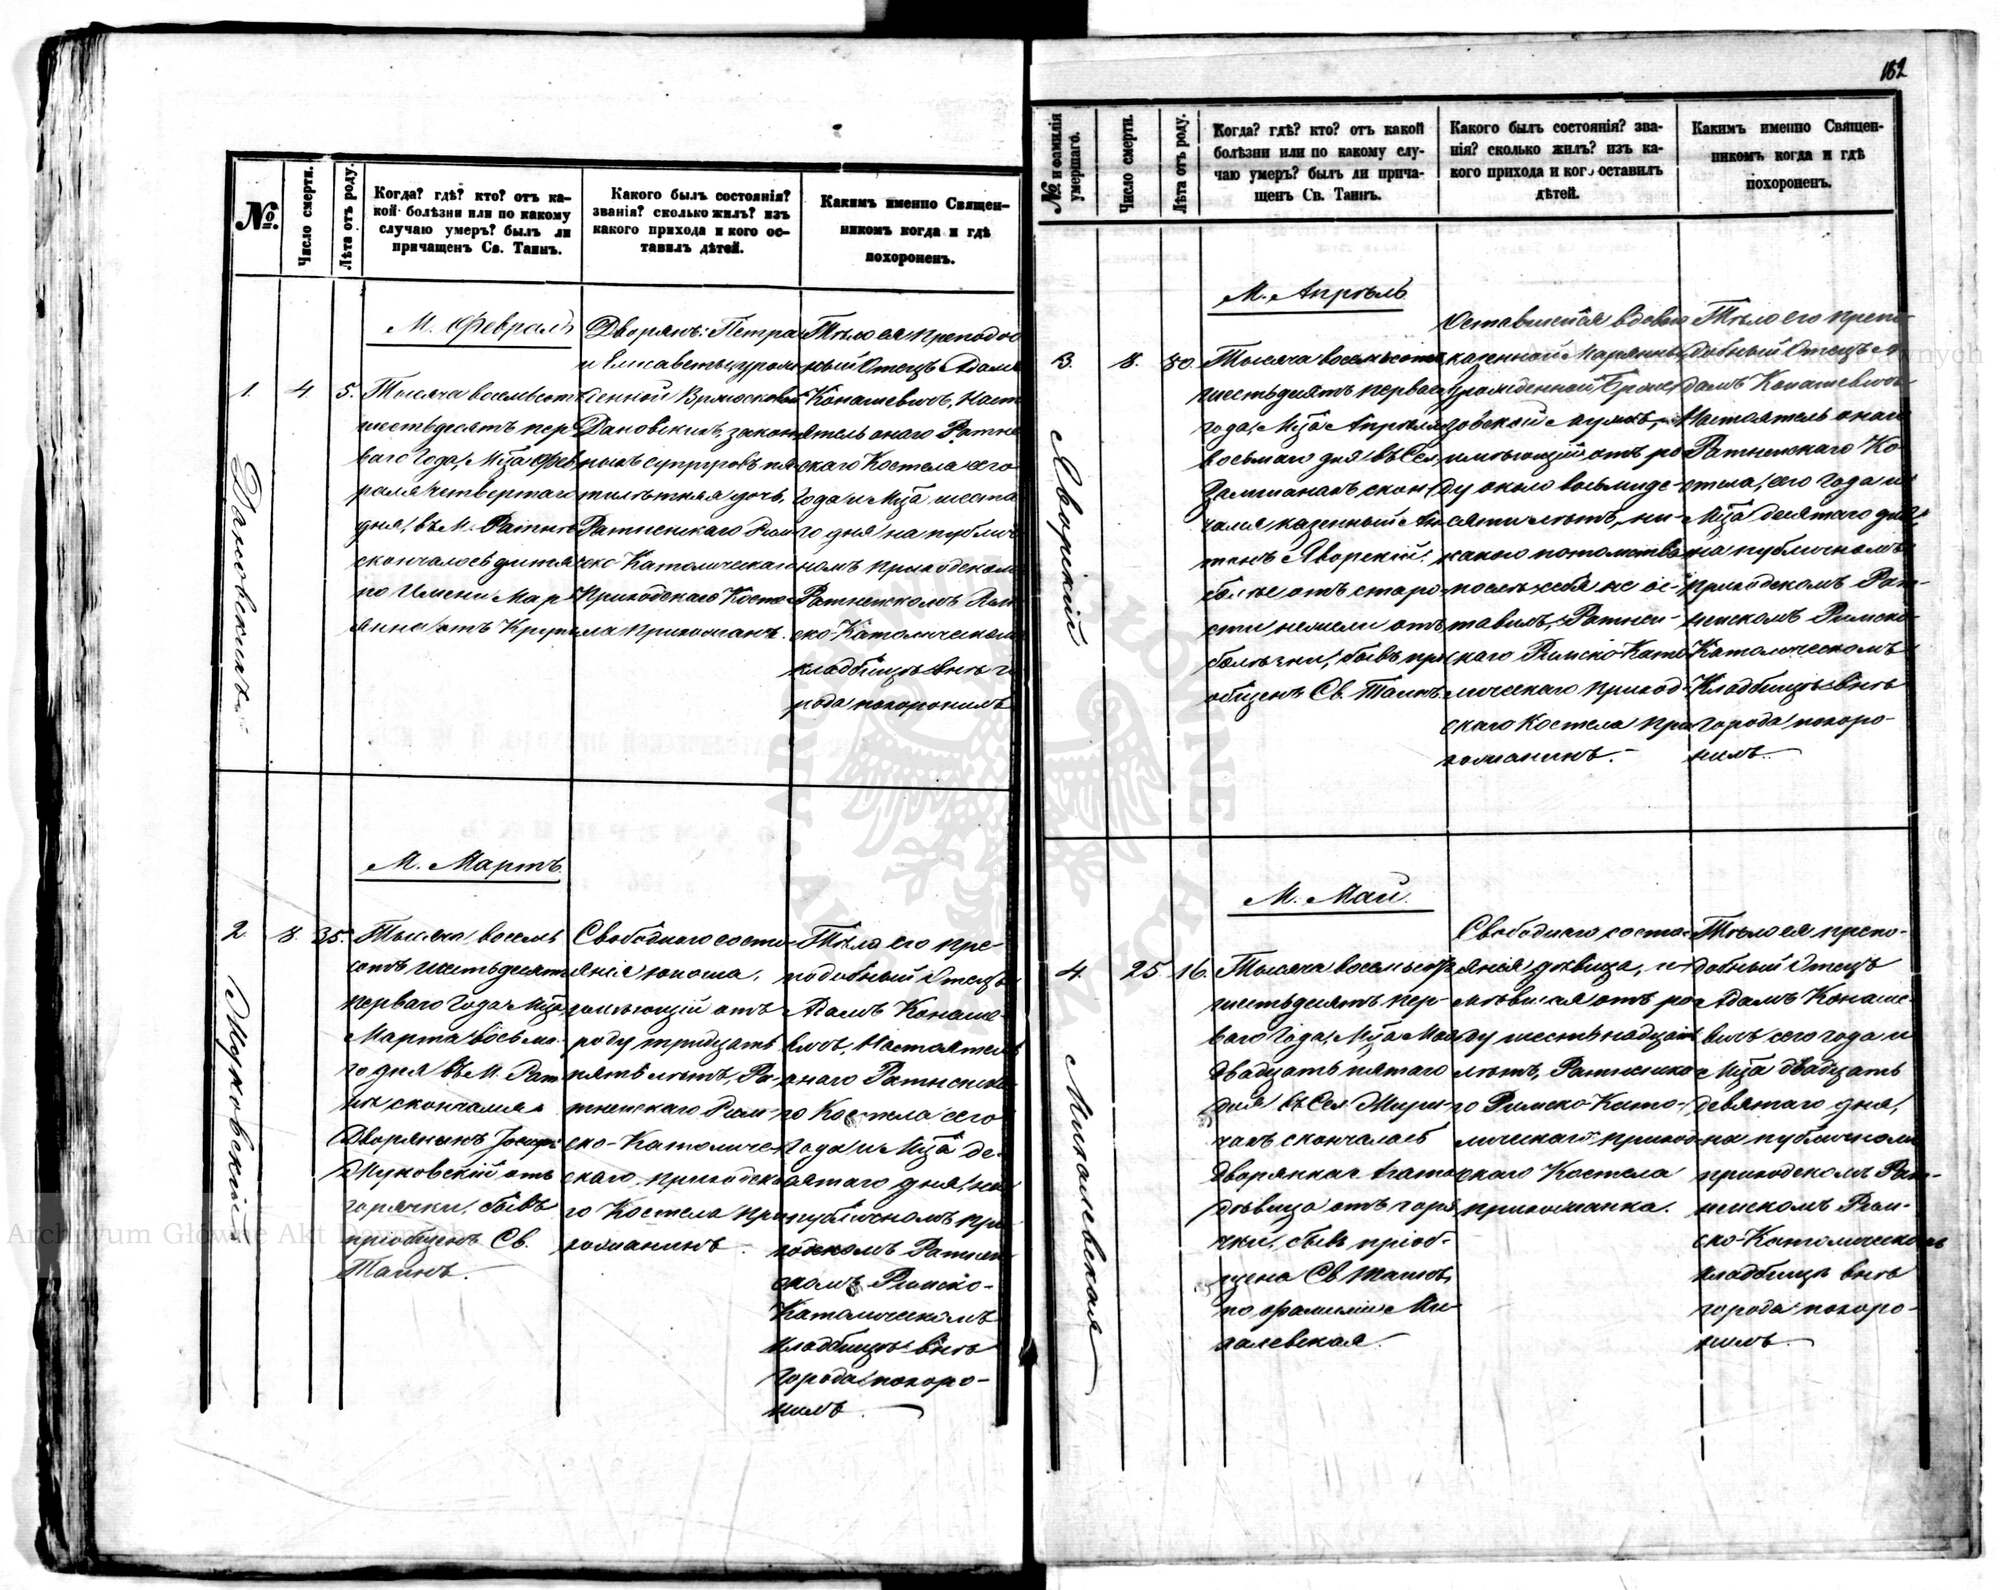 182
№.
Число смерти.
Лѣта отъ роду.
Когда? гдѣ? кто? отъ ка-
кой болѣзни или по какому
случаю умеръ? былъ ли
причащенъ Св. Таинъ.
Какого былъ состоянія?
званія? сколько жилъ? изъ
какого прихода и кого ос-
тавилъ дѣтей.
Какимъ именно Священ-
никомъ когда и гдѣ
похороненъ.
М. Февраль
1.
4.
5.
Тысяча восемьсотъ
шестьдесятъ пер
ваго Года, Мца Фев
раля четвертаго
дня, въ М. Ратнѣ
скончалось дитя
по Имени Мар
янна отъ Крупа
Дворянъ: Петра
и Елисаветы урож
Дановскихъ, закон
ныхъ супруговъ пя
тилѣтняя дочь,
Ратненскаго Рим
ско-Католическаго
Приходскаго Косте
ла прихожан.
Тѣло ея преподоб
ный Отецъ Адамъ
Конашевичъ, Наст
оятель онаго Ратне
скаго Костела сего
Года и Мца шеста
го дня на публич
номъ приходскомъ
Ратненскомъ Рим
ско-Католическомъ
кладбищѣ внѣ го
рода похоронилъ
М. Мартъ
2.
8.
35.
Тысяча восемь
сотъ шестьдесятъ
перваго Года Мца
Марта восьма
го дня въ М. Рат
нѣ скончался
Дворянинъ
горячки, бывъ
пріобщенъ Св.
Таинъ.
Свободнаго состо-
янія юноша,
имѣющій отъ
роду тридцать
пять лѣтъ, Ра-
тненскаго Рим-
ско-Католиче
скаго приходска
го Костела при
хожанинъ.
Тѣло его пре-
подобный Отецъ
Адамъ Конаше-
вичъ, Настоятель
онаго Ратненска
го Костела сего
Года и Мца де-
вятаго дня, на
публичномъ при
ходскомъ Ратнен
скомъ Римско-
Католическомъ
кладбищѣ внѣ
города похоро-
нилъ.
№ и фамилія
умершаго.
Число смерти.
Лѣта отъ роду.
Когда? гдѣ? кто? отъ какой
болѣзни или по какому слу-
чаю умеръ? былъ ли прича-
щенъ Св. Таинъ.
Какого былъ состоянія? зва-
нія? сколько жилъ? изъ ка-
кого прихода и кого оставилъ
дѣтей.
Какимъ именно Священ-
никомъ когда и гдѣ
похороненъ.
М. Апрѣль
3.
Яворскій
8.
80.
Тысяча восемьсотъ
шестьдесятъ перваго
года, Мца Апрѣля
восьмаго дня въ Сел
скон
чался казенный Ан
тонъ Яворскій
болѣе отъ старо-
сти нежели отъ
болѣзни, бывъ прі
общенъ Св. Таинъ
Оставшейся вдовы
казенной Марянны
урожденной
имѣющій отъ ро
ду около восьмиде-
сяти лѣтъ, ни-
какого потомства
послѣ себя не ос-
тавилъ, Ратнен-
скаго Римско-Като
лическаго приход
скаго Костела при
хожанинъ.
Тѣло его препо
добный Отецъ А
дамъ Конашевичъ
Настоятель онаго
Ратненскаго Ко-
стела, сего Года и
Мца десятаго дня,
на публичномъ
приходскомъ Рат-
ненскомъ Римско-
Католическомъ
Кладбищѣ внѣ
города похоро-
нилъ.
М. Май.
4.
Михалевская
25.
16.
Тысяча восемьсотъ
шестьдесятъ пер-
ваго Года, Мца Мая
двадцать пятаго
дня въ Сел
скончалась
дворянка Агата
дѣвица отъ горя
чки, бывъ пріоб-
щена Св. Таинъ,
по фамиліи Ми-
халевская.
Свободнаго состо-
янія дѣвица, и-
мѣвшая отъ ро-
ду шестьнадцать
лѣтъ, Ратненска
го Римско-Като-
лическаго приход
скаго Костела
прихожанка.
Тѣло ея препо-
добный Отецъ
Адамъ Конаше-
вичъ сего года и
Мца двадцать
девятаго дня,
на публичномъ
приходскомъ Рат-
ненскомъ Рим-
ско-Католическомъ
кладбищѣ внѣ
города похоро-
нилъ.
Archiwum Główne Akt Dawnych